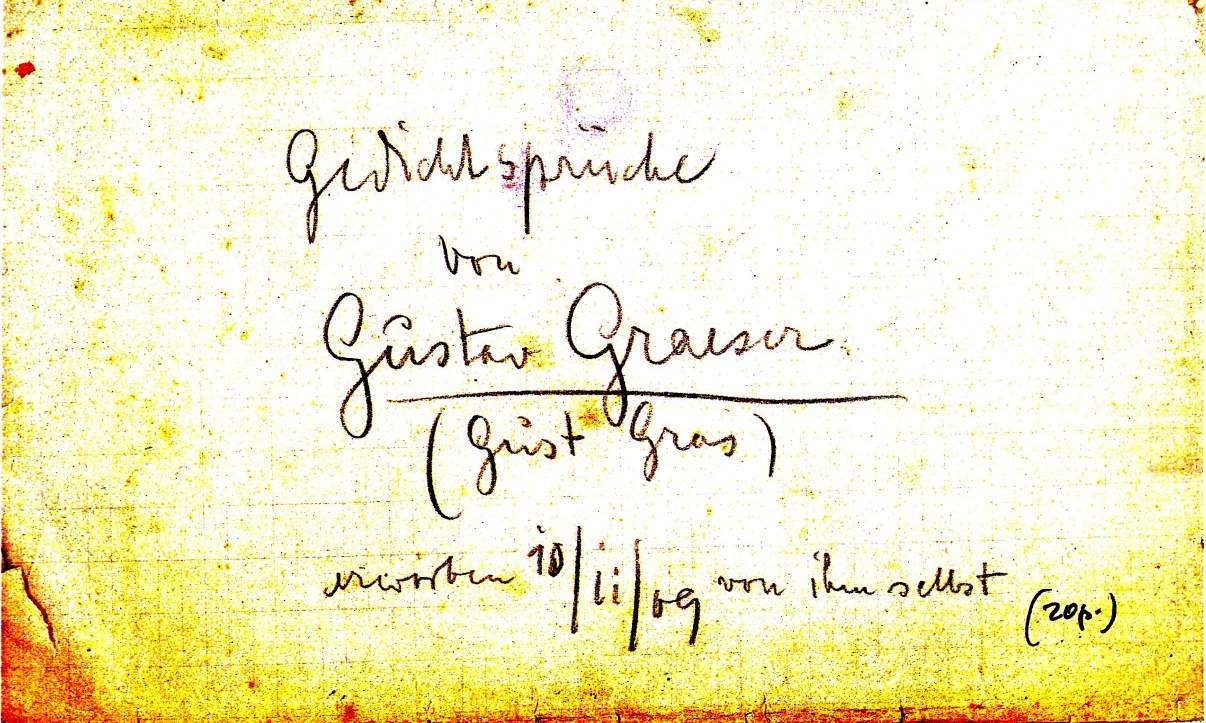 Gedichtsprüche
von
Gustav Graeser
(Gust Gras)
erworben 10/ii/09 von ihm selbst
(20p.)